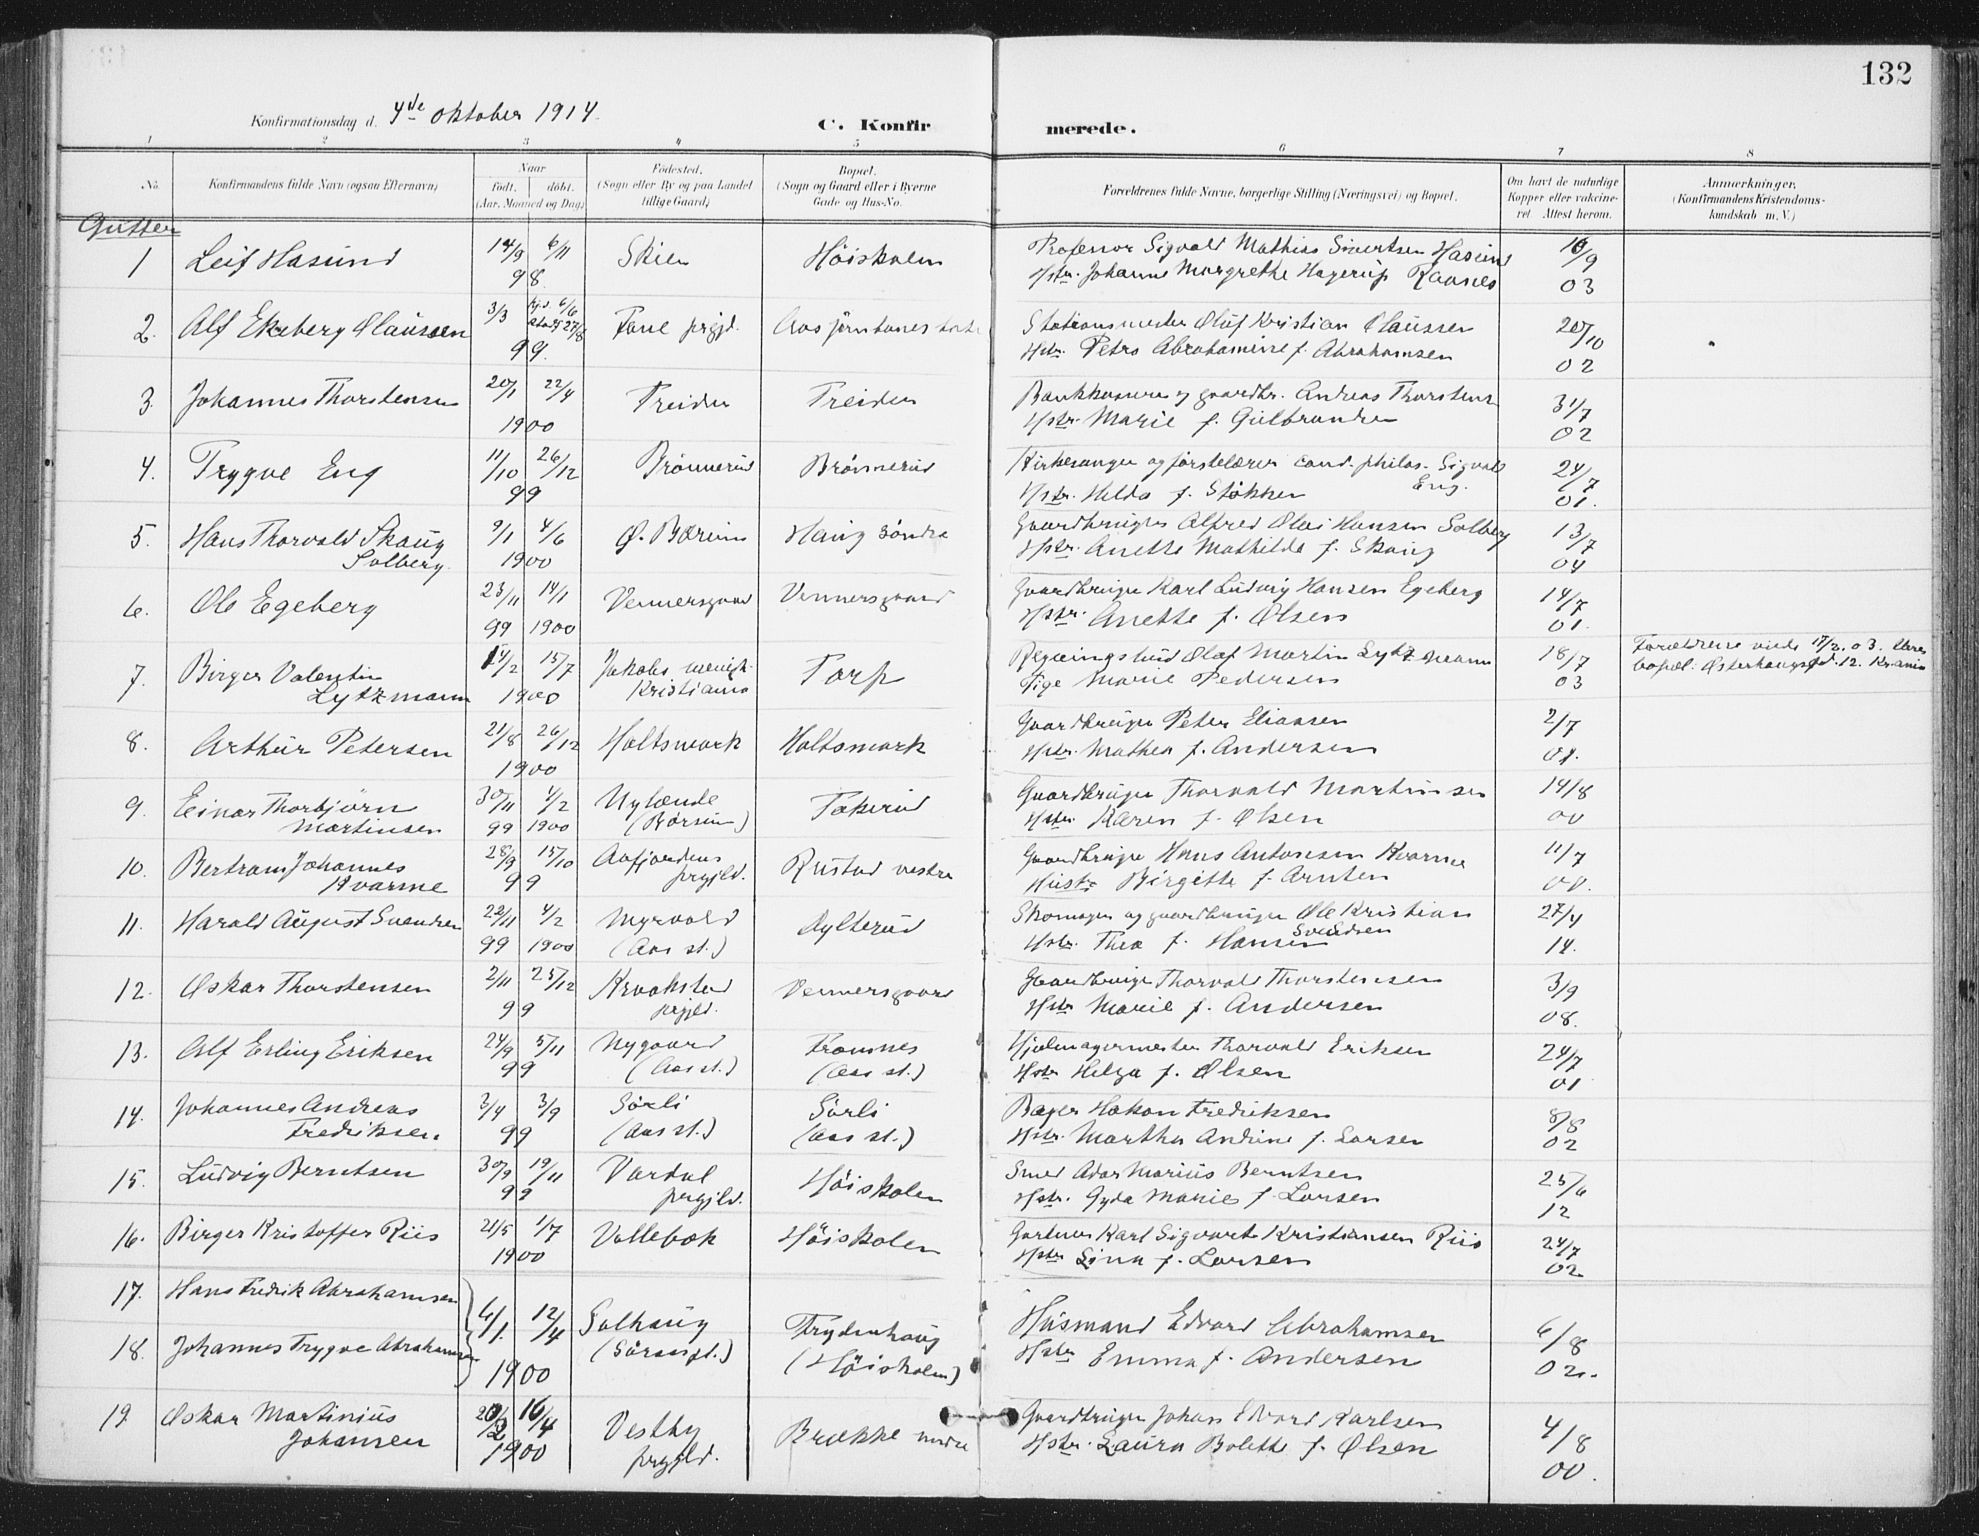 132
Konfirmationsdag d. 4de oktober 1914.
C. Konfirmerede.
1 2 3 4 5 6 7 8
No. Konfirmandens fulde Navn (ogsaa Efternavn) Naar født, døbt. (Aar, Maaned og Dag) Fødested. (Sogn eller By og paa Landet tillige Gaard) Bopæl. (Sogn og Gaard eller i Byerne Gade og Hus-No. Forældrenes fulde Navne, borgerlige Stilling (Næringsvei) og Bopæl. Om havt de naturlige Kopper eller vakcineret. Attest herom. Anmærkninger. (Konfirmandens Kristendomskundskab m. V.)
Gutter
1 Leif Hasund 14/9 6/11 98. Skien Høiskolen Professor Sigvald Mathias Hasund
Hstr. Johanne Margrethe Hagerup 10/9 03
2. Alf Ekeberg Olaussen 3/3 6/6 27/8 99. Fane prgjd. Stationsmester Oluf Kristian Olaussen
Hstr. Petra Abrahamine f. Abrahamsen 20/10 02
3. Johannes Thorstensen 20/1 22/4 1900 Freider Freider Bankkasserer og gaardbr. Andreas Thorstensen
Hstr. Marie f. Gulbrandsen 31/7 02
4. Trygve Eng 11/10 26/12 99 Brønnerud Brønnerud Kirkesanger og førstelærer cand. philos. Sigvald Eng.
Hstr. Hilda f. Stokker 24/7 01.
5. Hans Thorvald Skaug Solberg. 9/1 4/6 1900 Ø. Bærum Haug søndre Gaardbruger Alfred Olai Hansen Solberg
Hstr. Anette Mathilde f. Skaug 13/7 04
6. Ole Egeberg 23/11 99 14/1 1900 Vennersgaard Vennersgaard Gaardbruger Karl Ludvig Hansen Egeberg
Hstr. Anette f. Olsen 14/7 01.
7. Birger Valentin Lytzmann 14/2 15/7 1900 Jakobs menigh. Kristiania Torp Olaf Martin Lytzmann
Pige Marie Pedersen 18/7 03 Forældrene viede 17/2.03. Deres bopæl: Østerhausgd. 12. Kr.ania
8. Arthur Petersen 21/8 26/12 1900 Holtsmark Holtsmark Gaardbruger Peter Eliassen
Hstr. Mathea f. Andersen 2/7 01.
9. Einar Thorbjørn Martinsen 30/11 99 4/2 1900 Nylænde Gaardbruger Thorvald Martinsen
Hstr. Karen f. Olsen 14/8 00
10. Bertram Johannes Kvarme 28/9 15/10 99 Aafjordens prgjld. Rustad vestre Gaardbruger Hans Antonsen Kvarme
Hustr. Birgitte f. Arntsen 11/7 00.
11. Harald August Svendsen 22/11 99 4/2 1900 Myrvold (Aas st.) Dylterud Skomager og gaardbruger Ole Kristian Svendsen
Hstr. Thea f. Hansen 27/4 14.
12. Oskar Thorstensen 2/11 25/12 99 Kraakstad prgjld. Vennersgaard Gaardbruger Thorvald Thorstensen
Hstr. Marie f. Andersen 3/9 08.
13. Alf Erling Eriksen 24/9 5/11 99 Nygaard (Aas st.) Framnes (Aas st.) Hjulmagermester Thorvald Eriksen
Hstr. Helga f. Olsen 24/7 01
14. Johannes Andreas Fredriksen. 3/4 3/9 99 Sørli (Aas st.) Sørli (Aas st.) Bager Hakon Fredriksen
Hstr. Martha Andrine f. Larsen 8/8 02
15. Ludvig Berntsen 30/9 19/11 99 Vardal prgjld. Høiskolen Smed Marius Berntsen
Hstr. Gyda Marie f. Larsen 25/6 12
16. Birger Kristoffer Riis 21/5 1/7 1900 Vollebæk Høiskolen Gartner Karl Sigvart Kristiansen Riis
Hstr. Lina f. Larsen 24/7 02
17. Hans Fredrik Abrahamsen
18. Johannes Trygve Abrahamsen 6/1 12/4 1900 Solhaug Frydenhaug (Høiskolen) Husmand Edvard Abrahamsen
Hstr. Emma f. Andersen 6/8 02.
19 Oskar Martinius Johansen 20/2 16/4 1900 Vestby prgjld. Brække nedre Gaardbruger Johan Edvard Karlsen
Hstr. Laura Bolette f. Olsen 4/8 00.